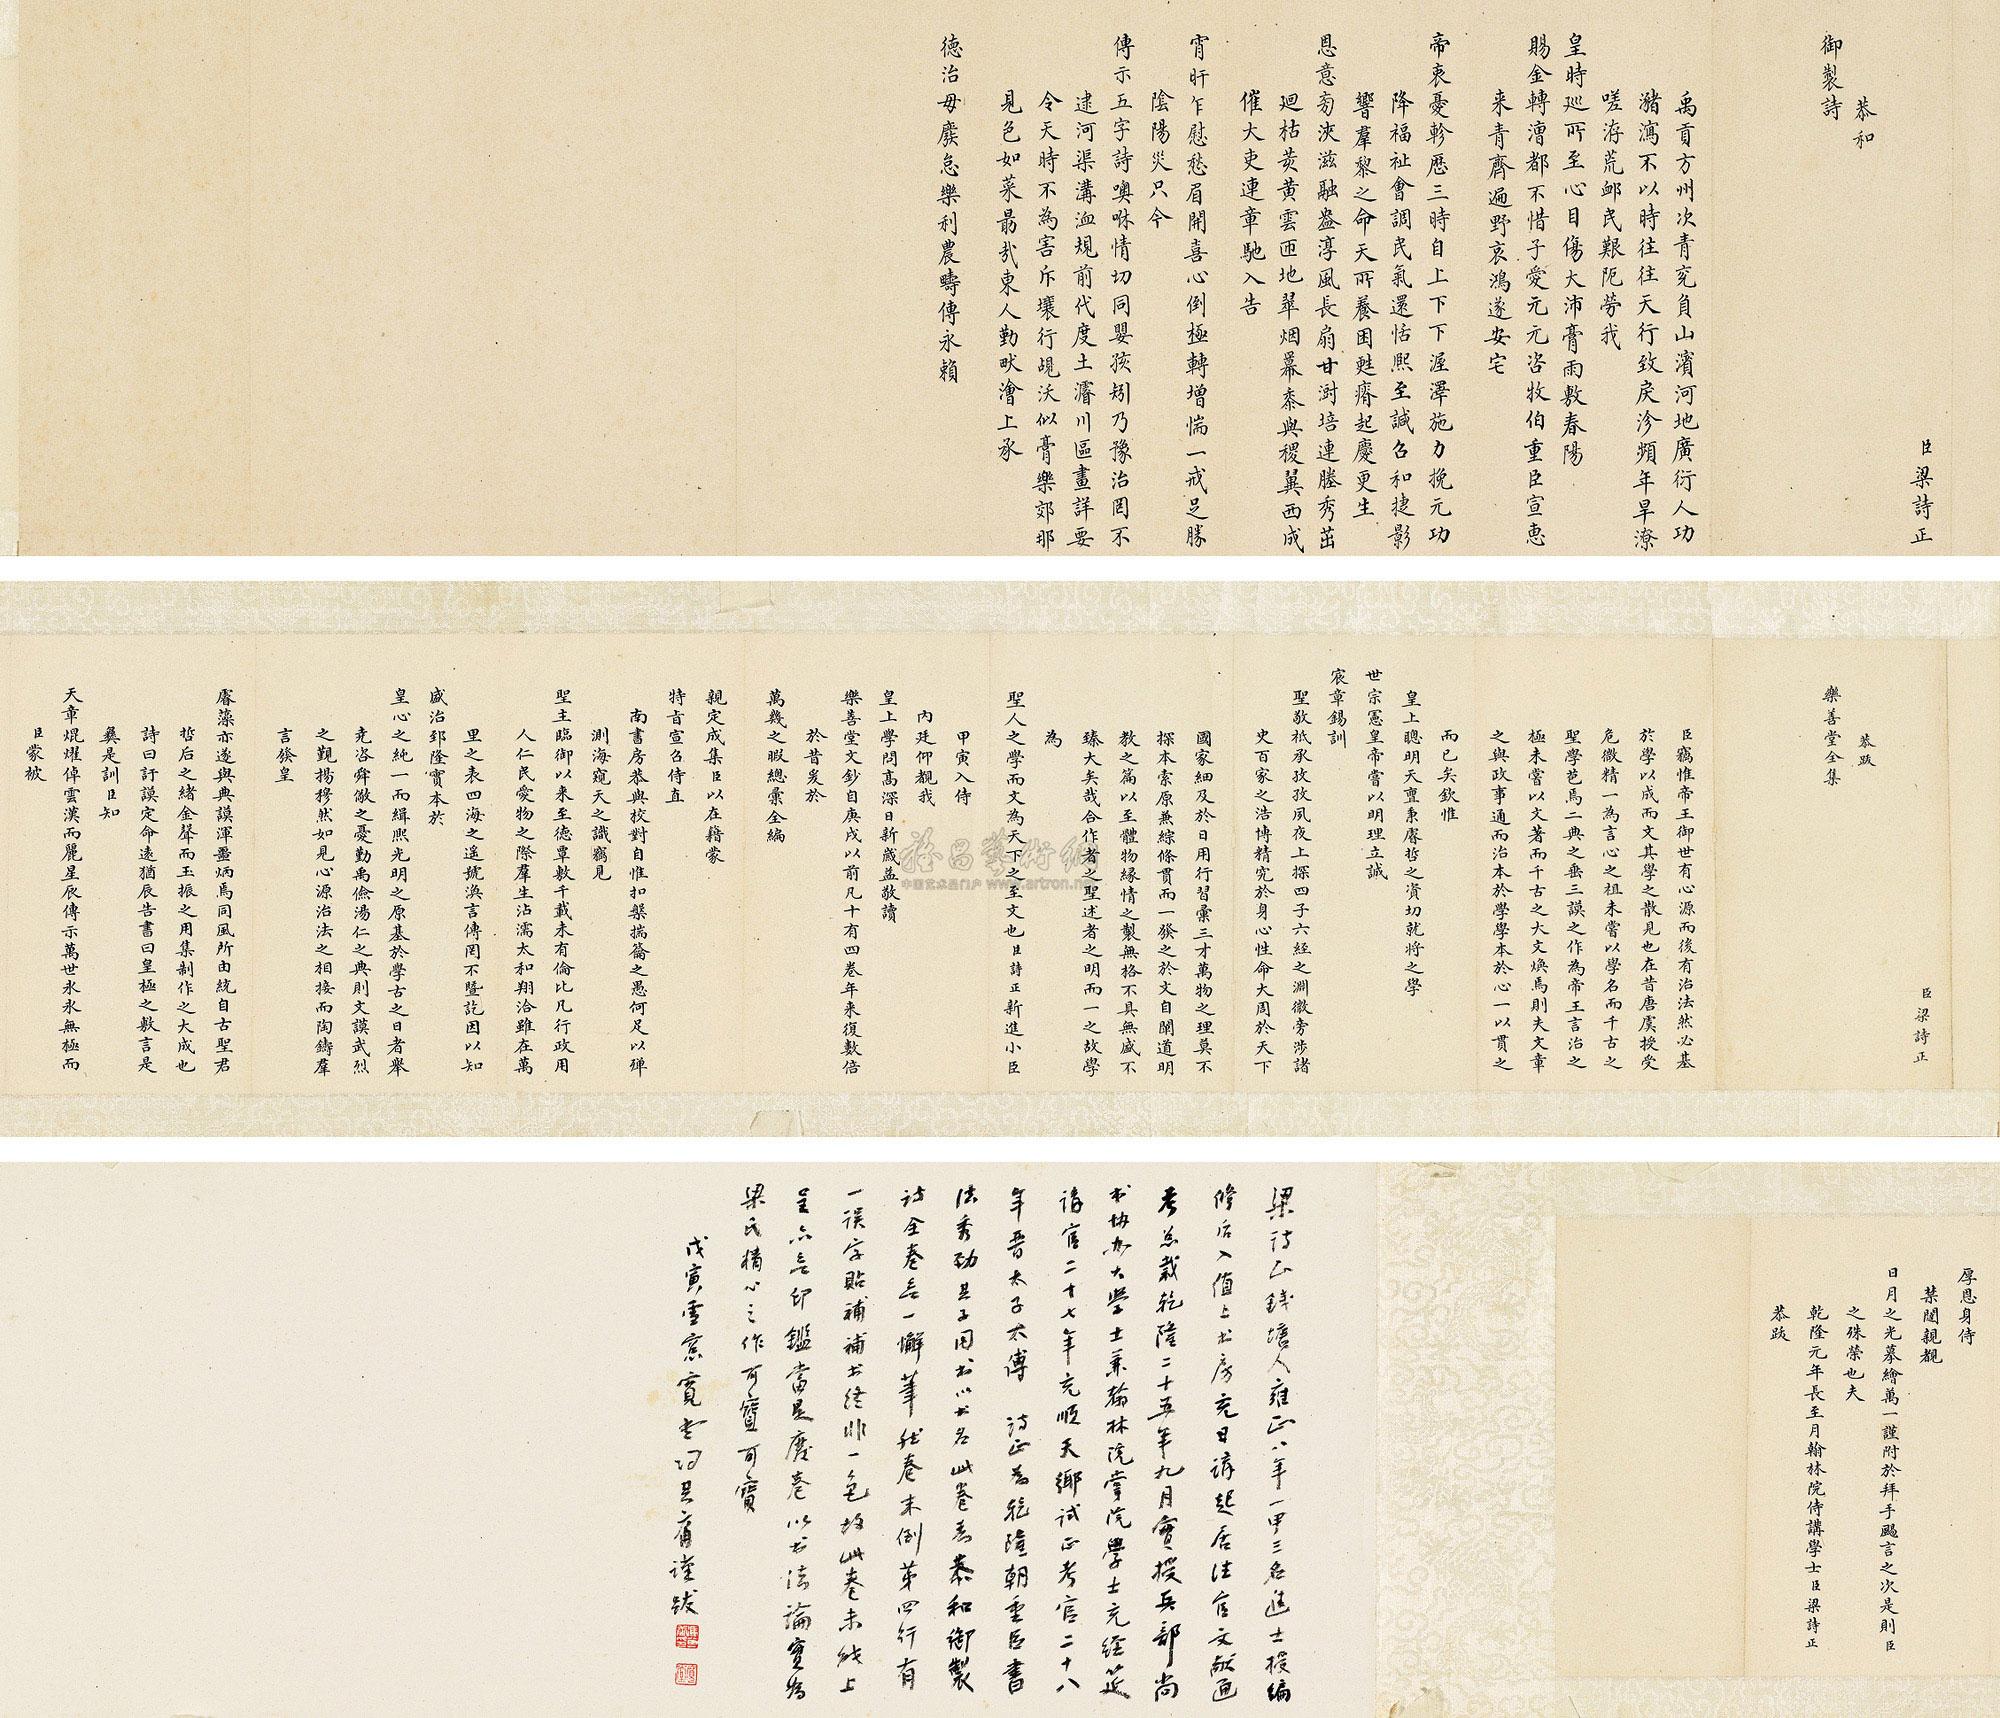 恭和
御製詩
臣梁詩正
禹貢方州次青兖負山濱河地廣衍人功
潴瀉不以時往往天行致戾沴頻年旱潦
嗟洊荒卹民艱阨勞我
皇時廵所至心目傷大沛膏雨敷春陽
賜金轉漕都不惜子愛元元咨牧伯重臣宣惠
来青齊遍野哀鴻遂安宅
帝衷憂軫歷三時自上下下渥澤施力挽元功
降福祉會調民氣還恬熙至諴召和捷影
響羣黎之命天所養困甦瘠起慶更生
恩意旁浹滋融盎淳風長扇甘澍培連塍秀茁
廻枯荄黄雲匝地翠烟幕黍與稷翼西成
催大吏連章馳入告
宵旰乍慰愁眉開喜心倒極轉增惴一戒足勝
陰陽災只今
傳示五字詩噢咻情切同嬰孩矧乃豫治罔不
逮河渠溝洫規前代度土濬川區畫詳要
令天時不為害斥壤行覘沃似膏樂郊那
見色如菜勗哉東人勤畎澮上承
德治毋縻怠樂利農疇傳永賴
恭跋
樂善堂全集
臣梁詩正
臣竊惟帝王御世有心源而後有治法然必基
於學以成而文其學之散見也在昔唐虞授受
危微精一為言心之祖未嘗以學名而千古之
聖學芭焉二典之垂三謨之作為帝王言治之
極未嘗以文著而千古之大文煥焉則夫文章
之與政事通而治本於學學本於心一以貫之
而已矣欽惟
皇上聰明天亶秉睿哲之資切就將之學
世宗憲皇帝嘗以明理立誠
宸章錫訓
聖敬祗承孜孜夙夜上探四子六經之淵微旁涉諸
史百家之浩博精究於身心性命大周於天下
國家細及於日用行習彙三才萬物之理莫不
探本索原兼綜條貫而一發之於文自闡道明
教之篇以至體物緣情之製無格不具無盛不
臻大矣哉合作者之聖述者之明而一之故學
為
聖人之學而文為天下之至文也臣詩正新進小臣
甲寅入侍
内廷仰覩我
皇上學問高深日新歲益敬讀
樂善堂文鈔自庚戌以前凡十有四卷年来復數倍
於昔爰於
萬幾之暇總彙全編
親定成集臣以在籍蒙
特旨宣召侍直
南書房恭與校對自惟扣槃揣籥之愚何足以殫
測海窺天之識竊見
聖主臨御以来至德覃敷千載未有倫比凡行政用
人仁民愛物之際羣生沾濡太和翔洽雖在萬
里之表四海之遥號渙言傳罔不曁訖因以知
盛治郅隆實本於
皇心之純一而緝熙光明之原基於學古之日者舉
堯咨舜儆之憂勤禹儉湯仁之典則文謨武烈
之觀揚穆然如見心源治法之相接而陶鑄羣
言發皇
睿藻亦遂與典謨渾噩炳焉同風所由統自古聖君
哲后之緒金聲而玉振之用集制作之大成也
詩曰訏謨定命遠猶辰告書曰皇極之敷言是
彝是訓臣知
天章焜燿倬雲漢而麗星辰傳示萬世永永無極而
臣蒙被
厚恩身侍
禁闥親覩
日月之光摹繪萬一謹附於拜手颺言之次是則臣
之殊榮也夫
乾隆元年長至月翰林院侍講學士臣梁詩正
恭跋
梁詩正錢塘人雍正八年一甲三名進士授編
修后入值上书房充日講起居注官文献通
考总裁乾隆二十五年九月實授兵部尚
书协办大學士兼翰林院掌院學士充經筵
講官二十七年充順天鄉試正考官二十八
年晋太子太傅 詩正為乾隆朝重臣書
法秀劲其子同书以书名此卷為恭和御製
詩全卷无一懈筆然卷末倒第四行有
一误字貼補補书终非一色故此卷未能上
呈亦无印鑑當是廢卷以书法論實為
梁氏精心之作可寶可寶
戊寅雪窻
謹跋
雅昌藝術網
中国艺术品门户 www.artron.net